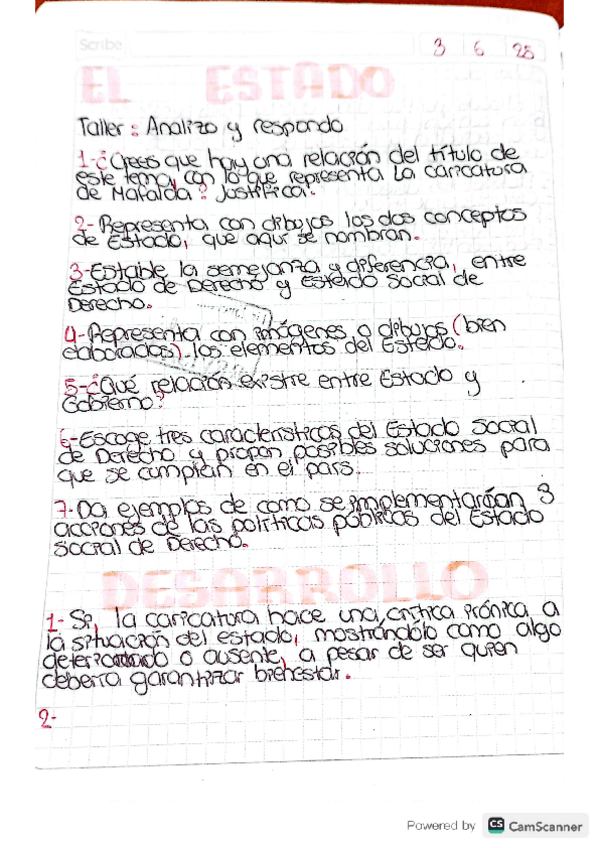 Scribe
3 6 25
EL ESTADO
Taller: Analizo y respondo
1-¿Crees que hay una relación del título de
este tema, con lo que representa La caricatura
de Mafalda? Justifica.
2-Representa con dibujos los dos conceptos
de Estado, que aquí se nombran.
3-Estable la semejanza y diferencia, entre
Estado de Derecho y Estado Social de
Derecho.
4-Representa con imágenes o dibujos (bien
elaborados) los elementos del Estado.
5-¿Qué relación existre entre Estado y
Gobierno?
6-Escoge tres características del Estado Social
de Derecho y propon posibles soluciones para
que se cumplan en el país.
7-Da ejemplos de como se implementarían 3
acciones de las políticas públicas del Estado
Social de Derecho.
DESARROLLO
1- Si, la caricatura hace una crítica irónica a
la situación del estado, mostrándolo como algo
deteriorado o ausente, a pesar de ser quien
debería garantizar bienestar.
2-
Powered by CS CamScanner